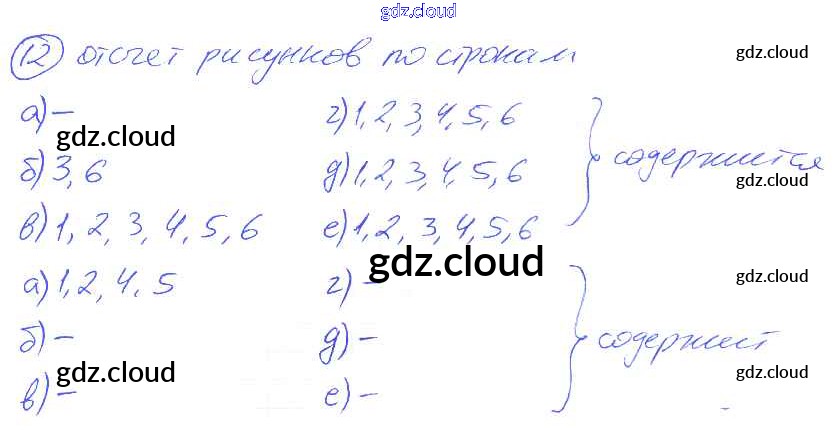 gdz.cloud
12 отсчет рисунков по строкам
gdz.cloud
а) – г) 1, 2, 3, 4, 5, 6
gdz.cloud
б) 3, 6 д) 1, 2, 3, 4, 5, 6 содержится
gdz.cloud
gdz.cloud
в) 1, 2, 3, 4, 5, 6 е) 1, 2, 3, 4, 5, 6
gdz.cloud
а) 1, 2, 4, 5 г) –
gdz.cloud
б) – д) – содержит
gdz.cloud
gdz.cloud
в) – е) –